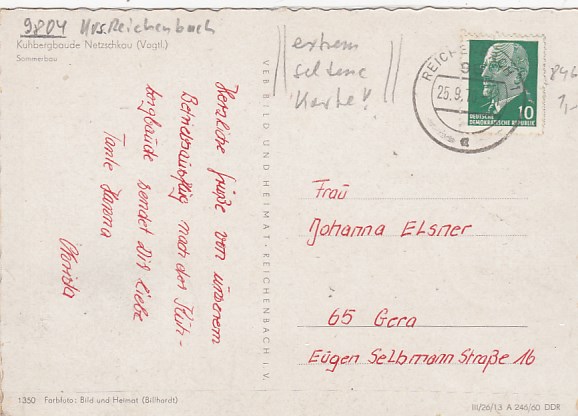 9804 Krs. Reichenbach
Kuhbergbaude Netzschkau (Vogtl.)
Sommerbau
extrem
seltene
Karte!
Herzliche Grüße von unserem
Betriebsausflug nach der Kuh-
bergbaude sendet Dir liebe
Tante Hanna
VEB BILD UND HEIMAT · REICHENBACH I. V.
REICHENBACH
25.9.
a
10
DEUTSCHE
DEMOKRATISCHE REPUBLIK
846
1,-
Frau
Johanna Elsner
65 Gera
Eugen Selbmann Straße 16
1350 Farbfoto: Bild und Heimat (Billhardt)
III/26/13 A 246/60 DDR